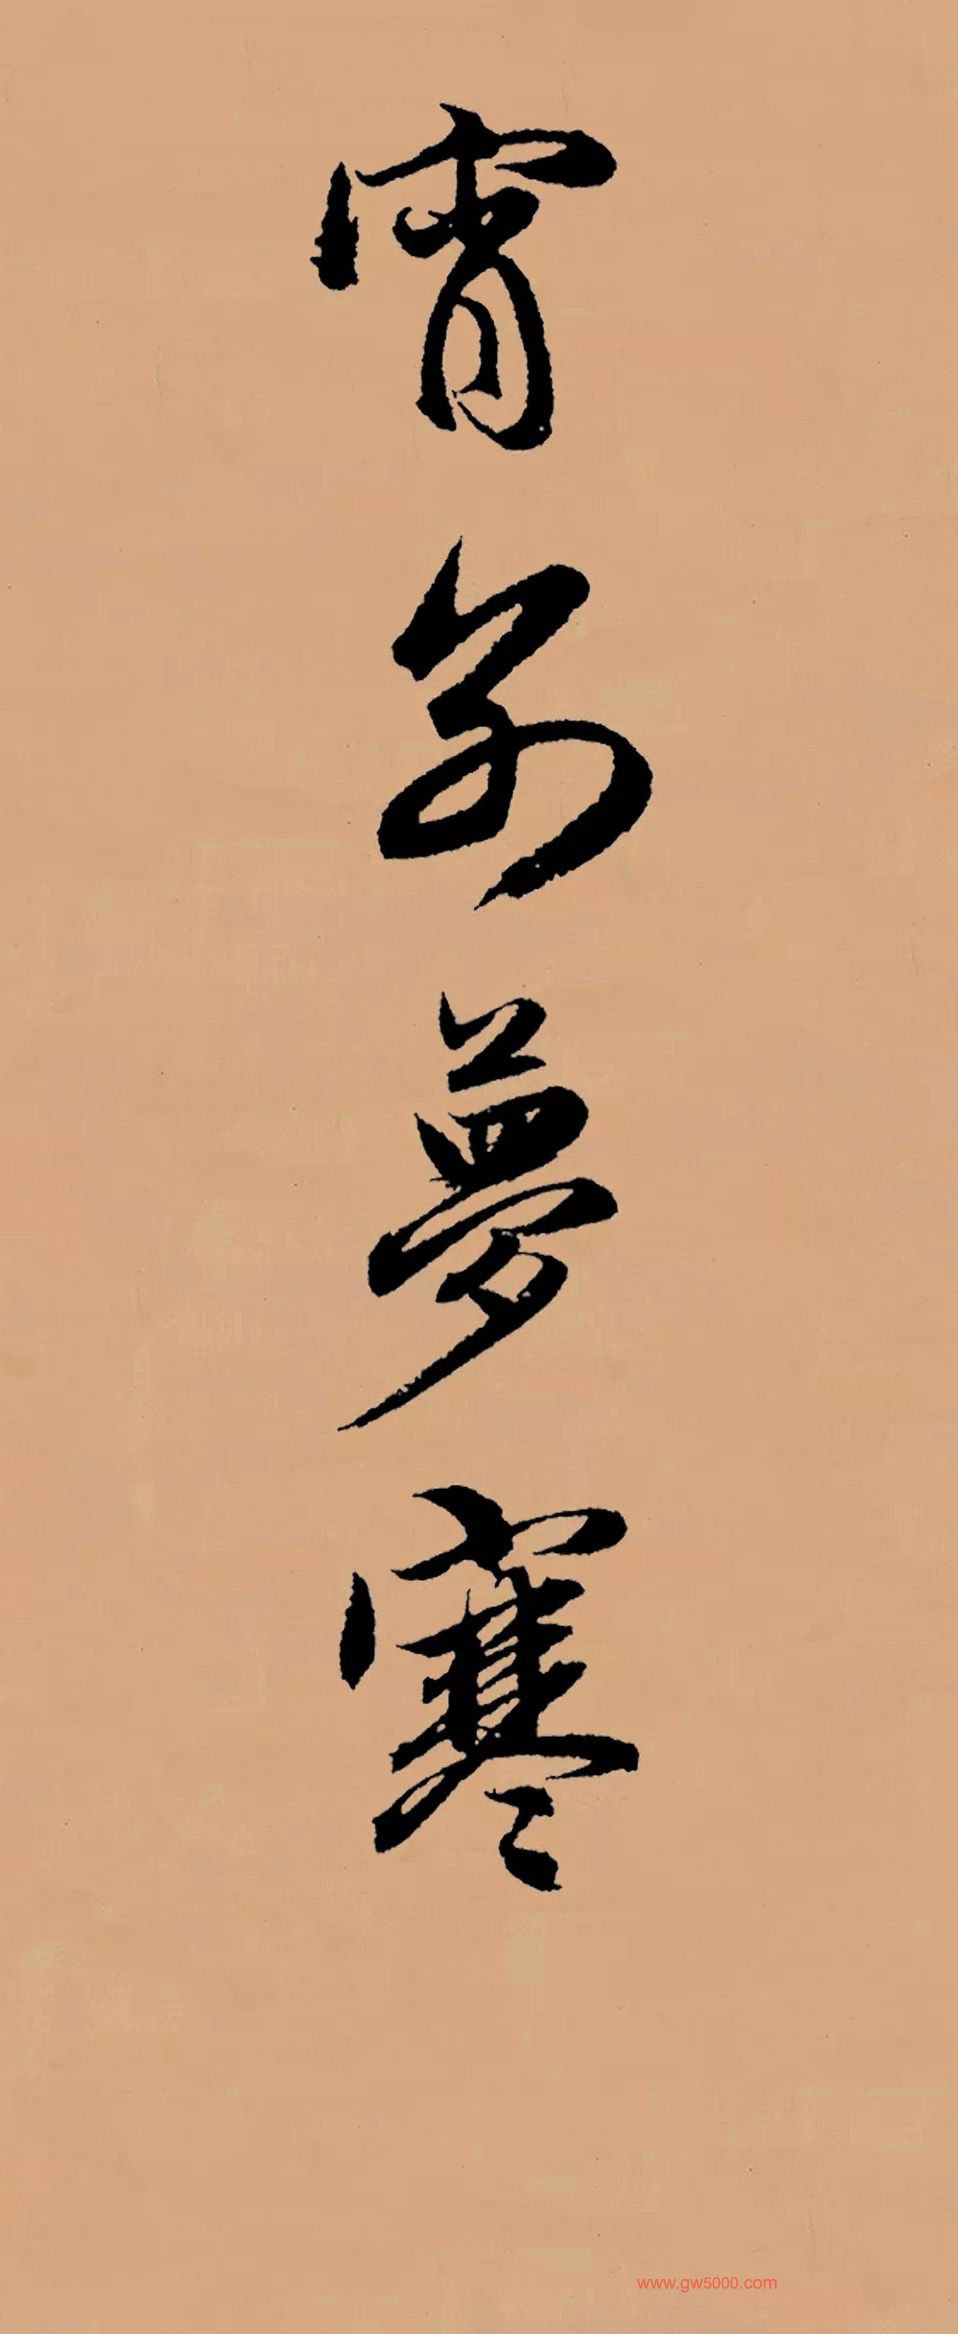 宵别夢寒
www.gw5000.com